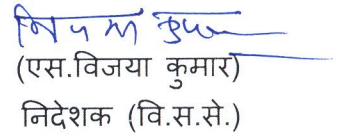 (एस.विजया कुमार)
निदेशक (वि.स.से.)